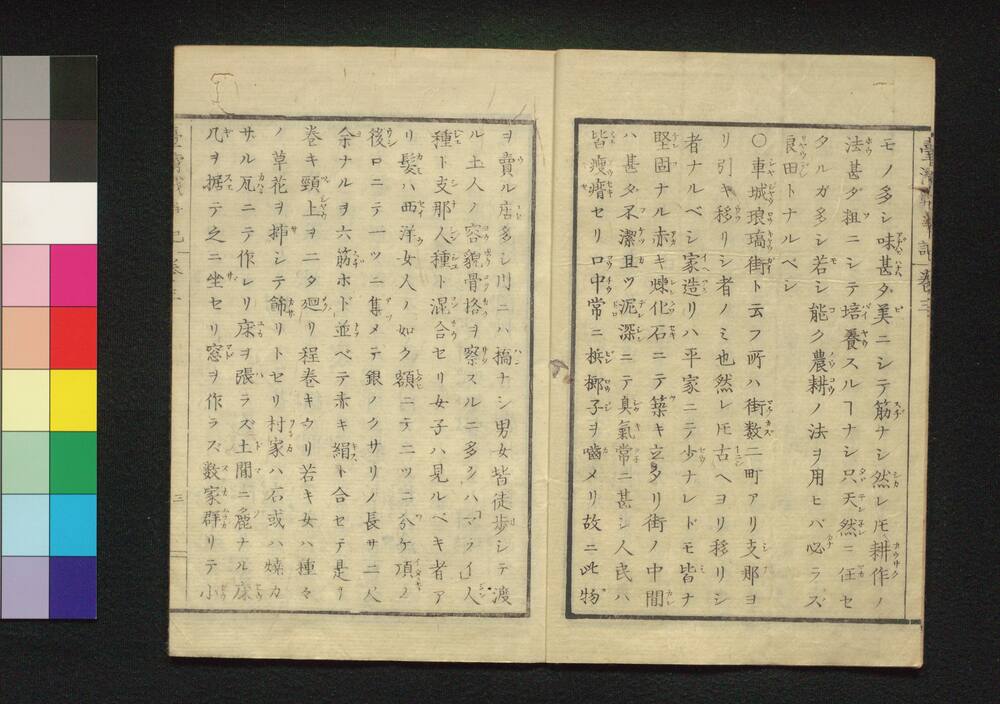 モノ多シ味甚ダ美ニシテ筋ナシ然レㇳモ耕作ノ
法甚ダ粗ニシテ培養スルヿナシ只天然ニ任セ
タルガ多シ若シ能ク農耕ノ法ヲ用ヒバ必ラズ
良田トナルベシ
〇車城琅𤩪街ト云フ所ハ街数二町アリ支那ヨ
リ引キ移リシ者ノミ也然レㇳモ古ヘヨリ移リシ
者ナルベシ家造リハ平家ニテ少ナレドモ皆ナ
堅固ナル赤キ煉化石ニテ築キ立タリ街ノ中間
ハ甚タ不潔且ツ泥深ニテ臭氣常ニ甚シ人民ハ
皆瘦瘠セリ口中常ニ梹榔子ヲ嚙メリ故ニ此物
ヲ賣ル店多シ川ニハ槗ナシ男女皆徒歩シテ渡
ル土人ノ容貌骨挌ヲ察スルニ多クハ人
種ト支那人種ト混合セリ女子ハ見ルベキ者ア
リ髪ハ西洋女人ノ如ク額ニテ二ツニ分ケ頂ノ
後ロニテ一ツニ集メテ銀ノクサリノ長サ二尺
余ナルヲ六筋ホド並ベテ赤キ絹ト合セテ是ヲ
巻キ頸上ヲ二タ廻リ程巻キヲリ若キ女ハ種々
ノ草花ヲ挿シテ餝リトセリ村家ハ石或ハ燒カ
サル瓦ニテ作レリ床ヲ張ラズ土間ニ麁ナル床
几ヲ据テ之ニ坐セリ窓ヲ作ラズ数家群リテ小
三